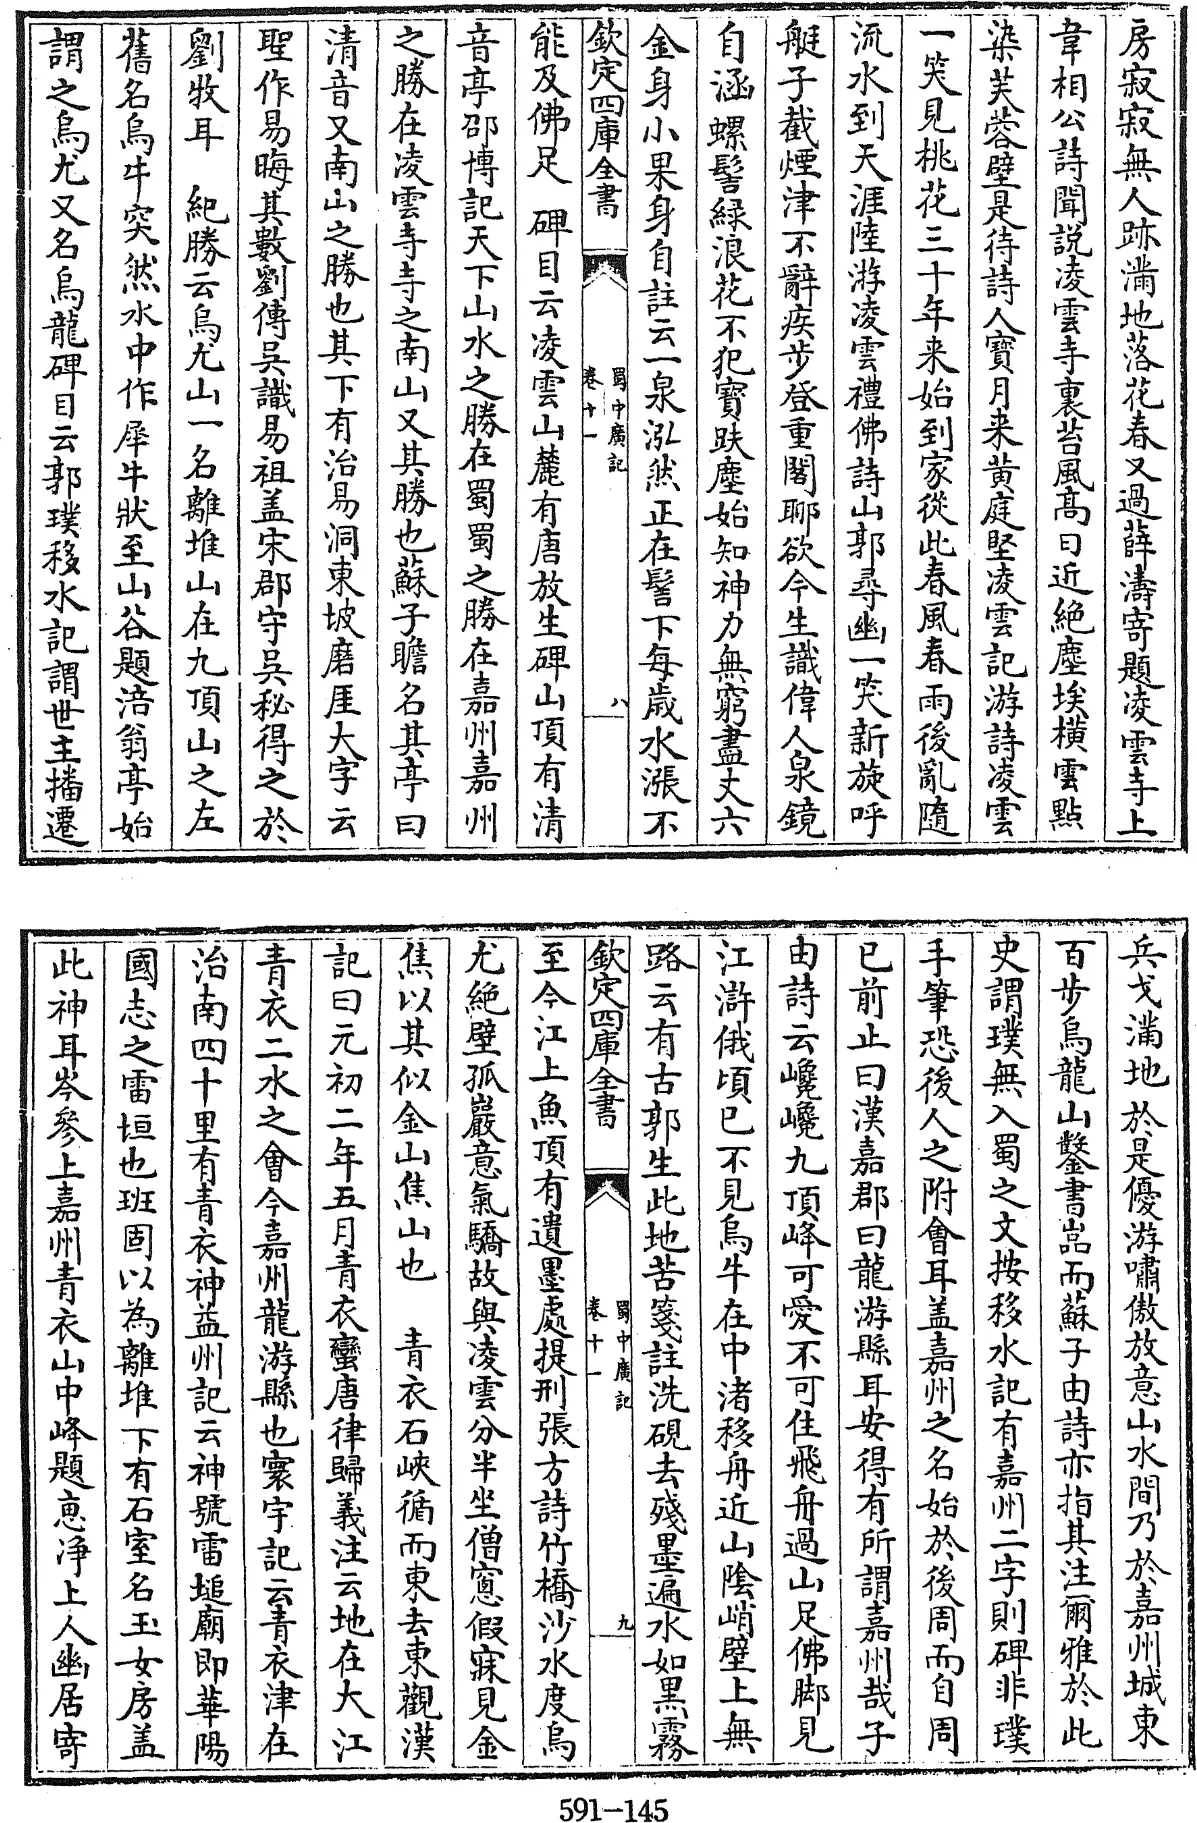 房寂寂無人跡滿地落花春又過薛濤寄題凌雲寺上
韋相公詩聞說凌雲寺裏苔風髙日近絶塵埃横雲點
染芙蓉壁是待詩人寶月来黄庭堅凌雲記游詩凌雲
一笑見桃花三十年来始到家從此春風春雨後亂隨
流水到天涯陸游凌雲禮佛詩山郭尋幽一笑新旋呼
艇子截煙津不辭疾步登重閣聊欲今生識偉人泉鏡
自涵螺髻緑浪花不犯寶趺塵始知神力無窮盡丈六
金身小果身自註云一泉泓然正在髻下每歳水漲不
欽定四庫全書
蜀中廣記
卷十一
八
能及佛足　碑目云凌雲山麓有唐放生碑山頂有清
音亭邵博記天下山水之勝在蜀蜀之勝在嘉州嘉州
之勝在凌雲寺寺之南山又其勝也蘇子瞻名其亭曰
清音又南山之勝也其下有治易洞東坡磨厓大字云
聖作易晦其數劉傳吳識易祖盖宋郡守吳秘得之於
劉牧耳　紀勝云烏尤山一名離堆山在九頂山之左
舊名烏牛突然水中作犀牛狀至山谷題涪翁亭始
謂之烏尤又名烏龍碑目云郭璞移水記謂世主播遷
兵戈滿地於是優游嘯傲放意山水間乃於嘉州城東
百步烏龍山鑿書嵓而蘇子由詩亦指其注爾雅於此
史謂璞無入蜀之文按移水記有嘉州二字則碑非璞
手筆恐後人之附會耳盖嘉州之名始於後周而自周
已前止曰漢嘉郡曰龍游縣耳安得有所謂嘉州哉子
由詩云巉巉九頂峰可愛不可住飛舟過山足佛脚見
江滸俄頃已不見烏牛在中渚移舟近山陰峭壁上無
路云有古郭生此地苦箋註洗硯去殘墨遍水如黒霧
欽定四庫全書
蜀中廣記
卷十一
九
至今江上魚頂有遺墨處提刑張方詩竹橋沙水度烏
尤絶壁孤巖意氣驕故與凌雲分半坐僧窻假寐見金
焦以其似金山焦山也　青衣石峽循而東去東觀漢
記曰元初二年五月青衣蠻唐律歸義注云地在大江
青衣二水之會今嘉州龍游縣也寰宇記云青衣津在
治南四十里有青衣神益州記云神號雷塠廟即華陽
國志之雷垣也班固以為離堆下有石室名玉女房盖
此神耳岑參上嘉州青衣山中峰題恵净上人幽居寄
591-145